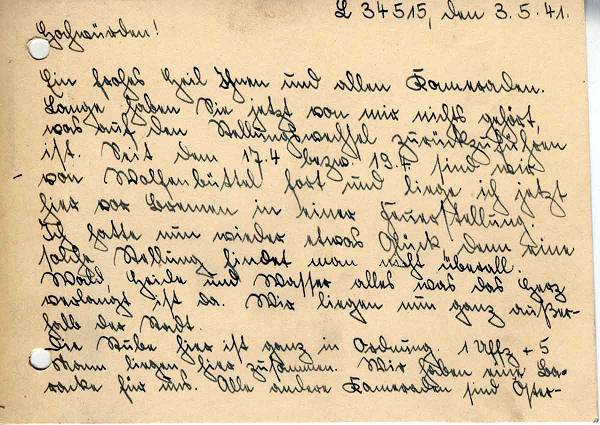 L 34515, den 3.5.41.
Hochwürden!
Ein frohes Heil Ihnen und allen Kameraden.
Lange haben Sie jetzt von mir nichts gehört,
was auf den Stellungswechsel zurückzuführen
ist. Seit dem 17.4 bezw. 19.4. sind wir
von Wolfenbüttel fort und liege ich jetzt
hier vor Bremen in einer Feuerstellung.
Ich hatte nun wieder etwas Glück denn eine
solche Stellung findet man nicht überall.
Wald, Heide und Wasser alles was das Herz
verlangt ist da. Wir liegen nun ganz außer-
halb der Stadt.
Die Stube hier ist ganz in Ordnung. 1 Uffz + 5
Mann liegen hier zusammen. Wir haben eine Ba-
racke für uns. Alle andere Kameraden sind Öster-